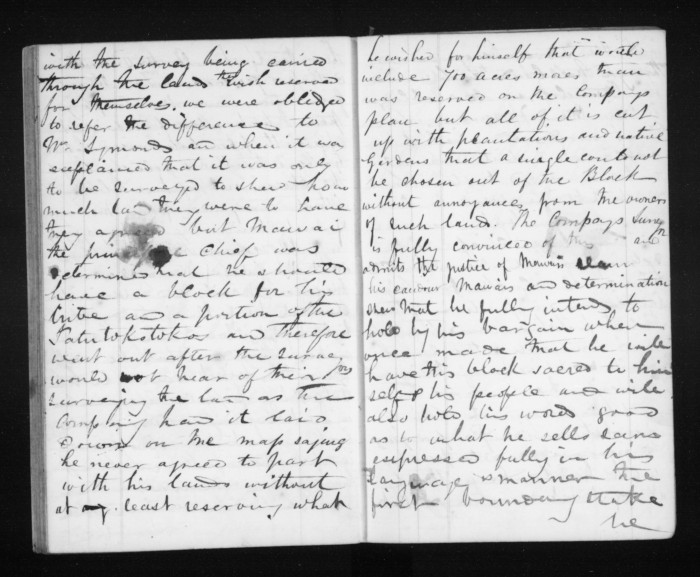 with the survey being carried
through the land they wish reserved
for themselves. we were obliged
to refer the difference to
Mr Symonds an when it was
explained that it was only
to be surveyed to shew how
much land they were to have
they agreed but Mawai
the principle chief was
determined that he should
have a block for his
tribe and a portion of the
and therefore
went out after the survey
would not hear of their
surveying the land as the
Company had it laid
down on the map saying
he never agreed to part
with his lands without
at least reserving what
he wished for himself that would
include 700 acres more than
was reserved on the Companys
plan but all of it is cut
up with plantations and native
Gardens that a single could not
be chosen out of the Block
without annoyances from the owners
of such land. The Companys Surveyor
is fully convinced of this and
admits the justice of Mawais claim
his Mawais and determination
shew that he fully intends to
hold by his bargain when
once made that he will
have his block sacred to him
self & his people and will
also hold his word good
as to what he sells
expressed fully in his
language & manner the
first boundary
he